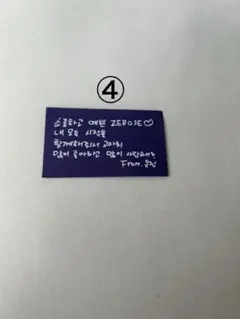 ④
소중하고 예쁜 ZEROSE♡
내 모든 시작을
함께해줘서 고마워
많이 좋아하고 많이 사랑해~
From.유진